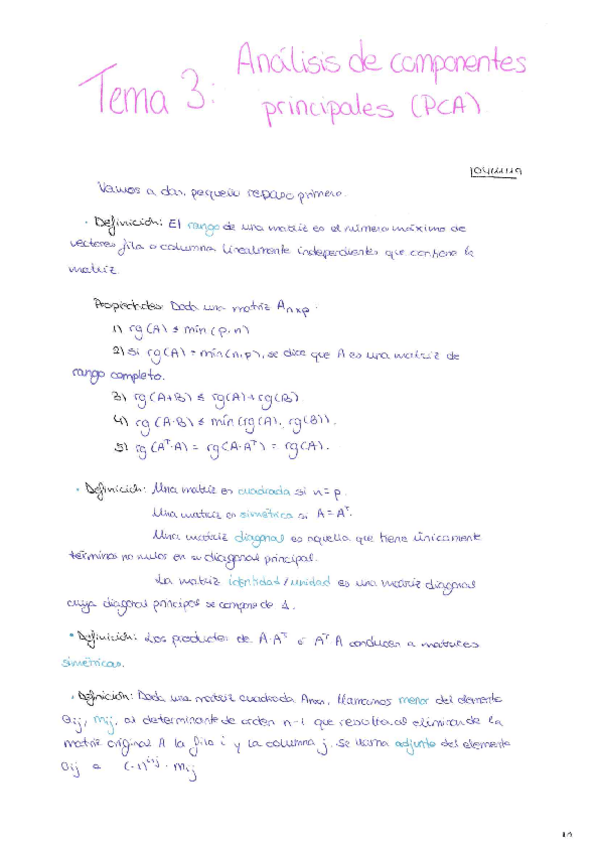 Tema 3: Análisis de componentes
principales (PCA)
Vamos a dar pequeño repaso primero.
· Definición: El rango de una matriz es el número máximo de
vectores fila o columna linealmente independientes que contiene la
matriz.
Propiedades: Dada una matriz Anxp.
1) rg(A) ≤ min(p,n)
2) si rg(A) = min(n,p), se dice que A es una matriz de
rango completo.
3) rg(A+B) ≤ rg(A)+rg(B)
4) rg(A·B) ≤ min(rg(A), rg(B)).
5) rg(Aᵀ·A) = rg(A·Aᵀ) = rg(A).
· Definición: Una matriz es cuadrada si n=p.
Una matriz es simétrica si A = Aᵀ.
Una matriz diagonal es aquella que tiene únicamente
términos no nulos en su diagonal principal.
La matriz identidad/unidad es una matriz diagonal
cuya diagonal principal se compone de 1.
· Definición: Los productos de A·Aᵀ ó Aᵀ·A conducen a matrices
simétricas.
· Definición: Dada una matriz cuadrada Anxn, llamamos menor del elemento
aij, mij, al determinante de orden n-1 que resulta al eliminar de la
matriz original A la fila i y la columna j. Se llama adjunto del elemento
aij a (-1)ⁱ⁺ʲ · mij